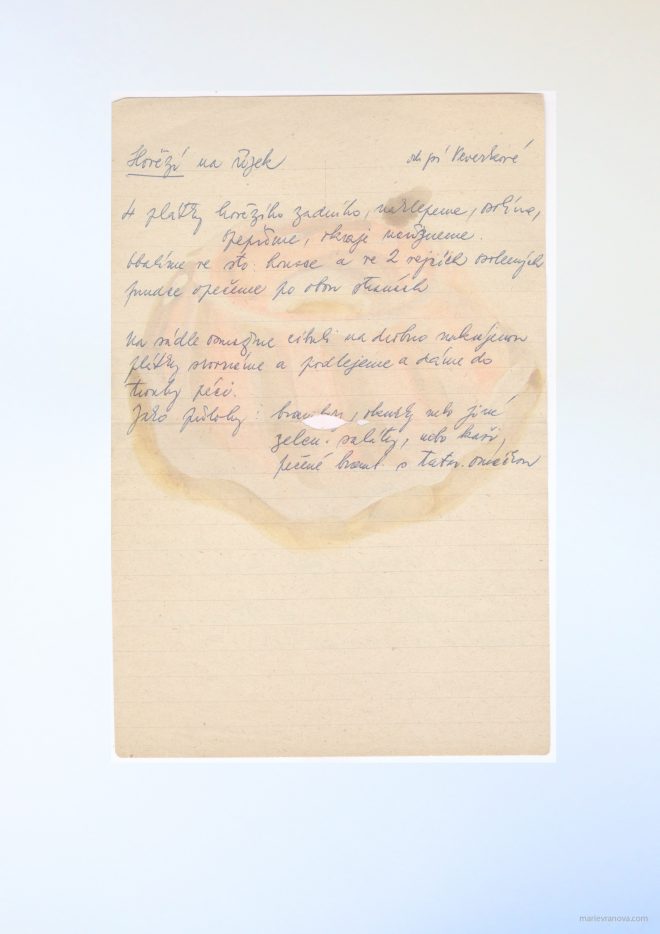 Hovězí na řízek od pí Veverkové
4 plátky hovězího zadního, naklepeme, osolíme,
opepříme, okraje nařízneme.
Obalíme ve str. housce a ve 2 vejcích osolených
prudce opečeme po obou stranách
Na sádle osmažíme cibuli na drobno nakrájenou
plátky srovnáme a podlejeme a dáme do
trouby péci.
Jako přílohy: brambory, okurky nebo jiné
zelen. saláty, nebo kaši,
pečené bramb. s tatar. omáčkou
marievranova.com